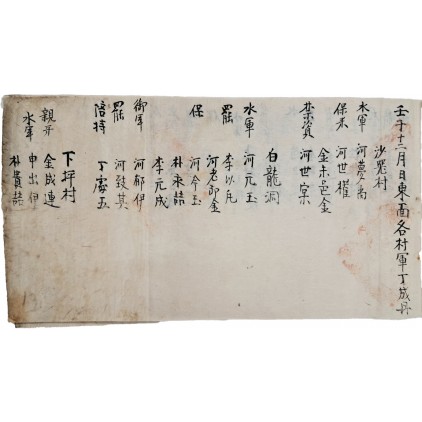 壬子十二月日東面各村軍丁成冊
沙器村
水軍 河夢禹
保米 河世權
金未邑金
業資 河世宗
白龍洞
水軍 河元玉
罷 李以凡
河老郎金
保 河今玉
朴永喆
李元成
御軍 河郁伊
罷 河致其
陪持 丁處玉
下坪村
親牙 金成連
申出伊
水軍 朴貴喆